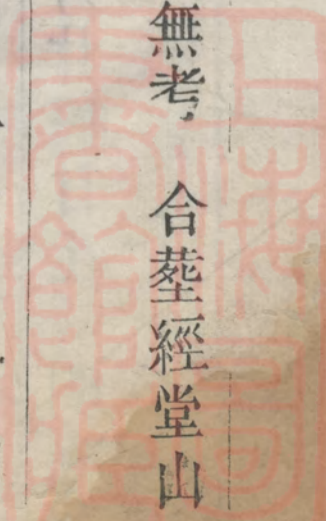 無考 合塟經堂山